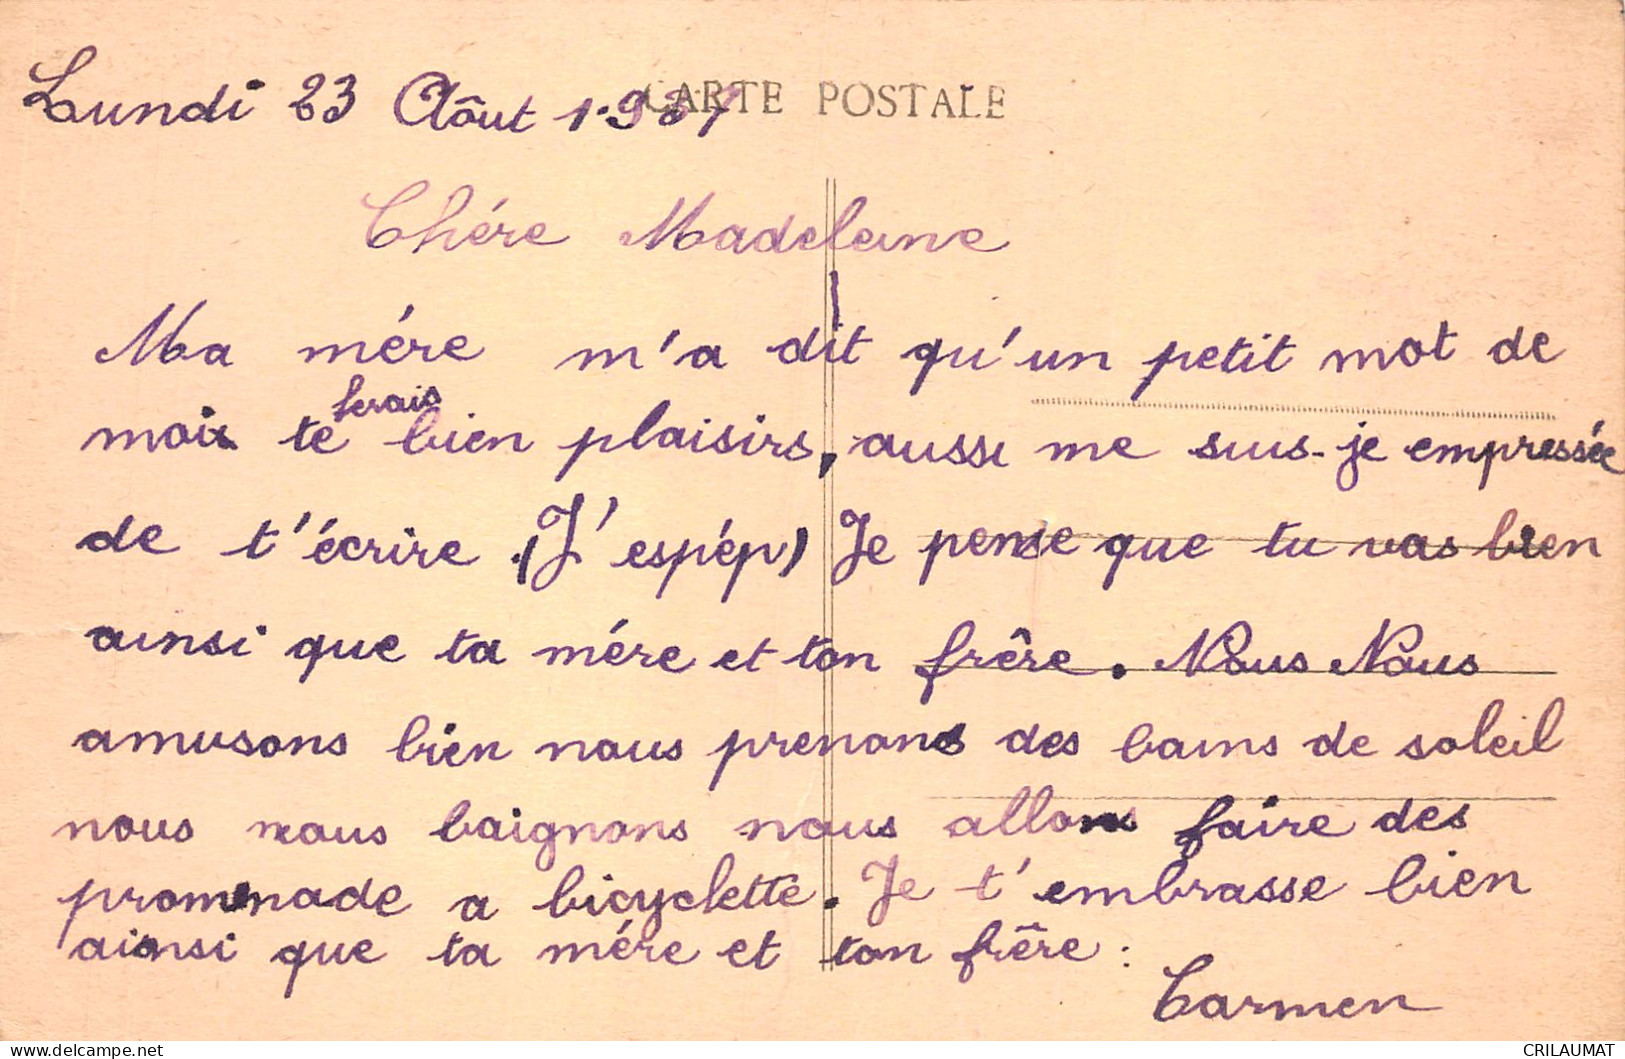 Lundi 23 Aôut 1.937 CARTE POSTALE
Chére Madeleine
Ma mére m'a dit qu'un petit mot de
ferais
moi te bien plaisirs, aussi me suis-je empressée
de t'écrire (J'espép) Je pense que tu vas bien
ainsi que ta mére et ton frêre. Nous Nous
amusons bien nous prenons des bains de soleil
nous nous baignons nous allons faire des
promenade a bicyclette. Je t'embrasse bien
ainsi que ta mére et ton frêre :
Carmen
Delcampe.net CRILAUMAT